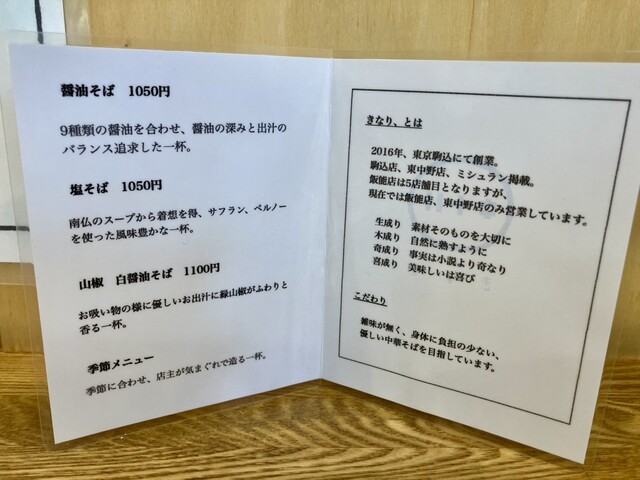 醤油そば　1050円
9種類の醤油を合わせ、醤油の深みと出汁の
バランス追求した一杯。
塩そば　1050円
南仏のスープから着想を得、サフラン、ペルノー
を使った風味豊かな一杯。
山椒　白醤油そば　1100円
お吸い物の様に優しいお出汁に緑山椒がふわりと
香る一杯。
季節メニュー
季節に合わせ、店主が気まぐれで造る一杯。
きなり、とは
2016年、東京駒込にて創業。
駒込店、東中野店、ミシュラン掲載。
飯能店は5店舗目となりますが、
現在では飯能店、東中野店のみ営業しています。
生成り　素材そのものを大切に
木成り　自然に熟すように
奇成り　事実は小説より奇なり
喜成り　美味しいは喜び
こだわり
雑味が無く、身体に負担の少ない、
優しい中華そばを目指しています。